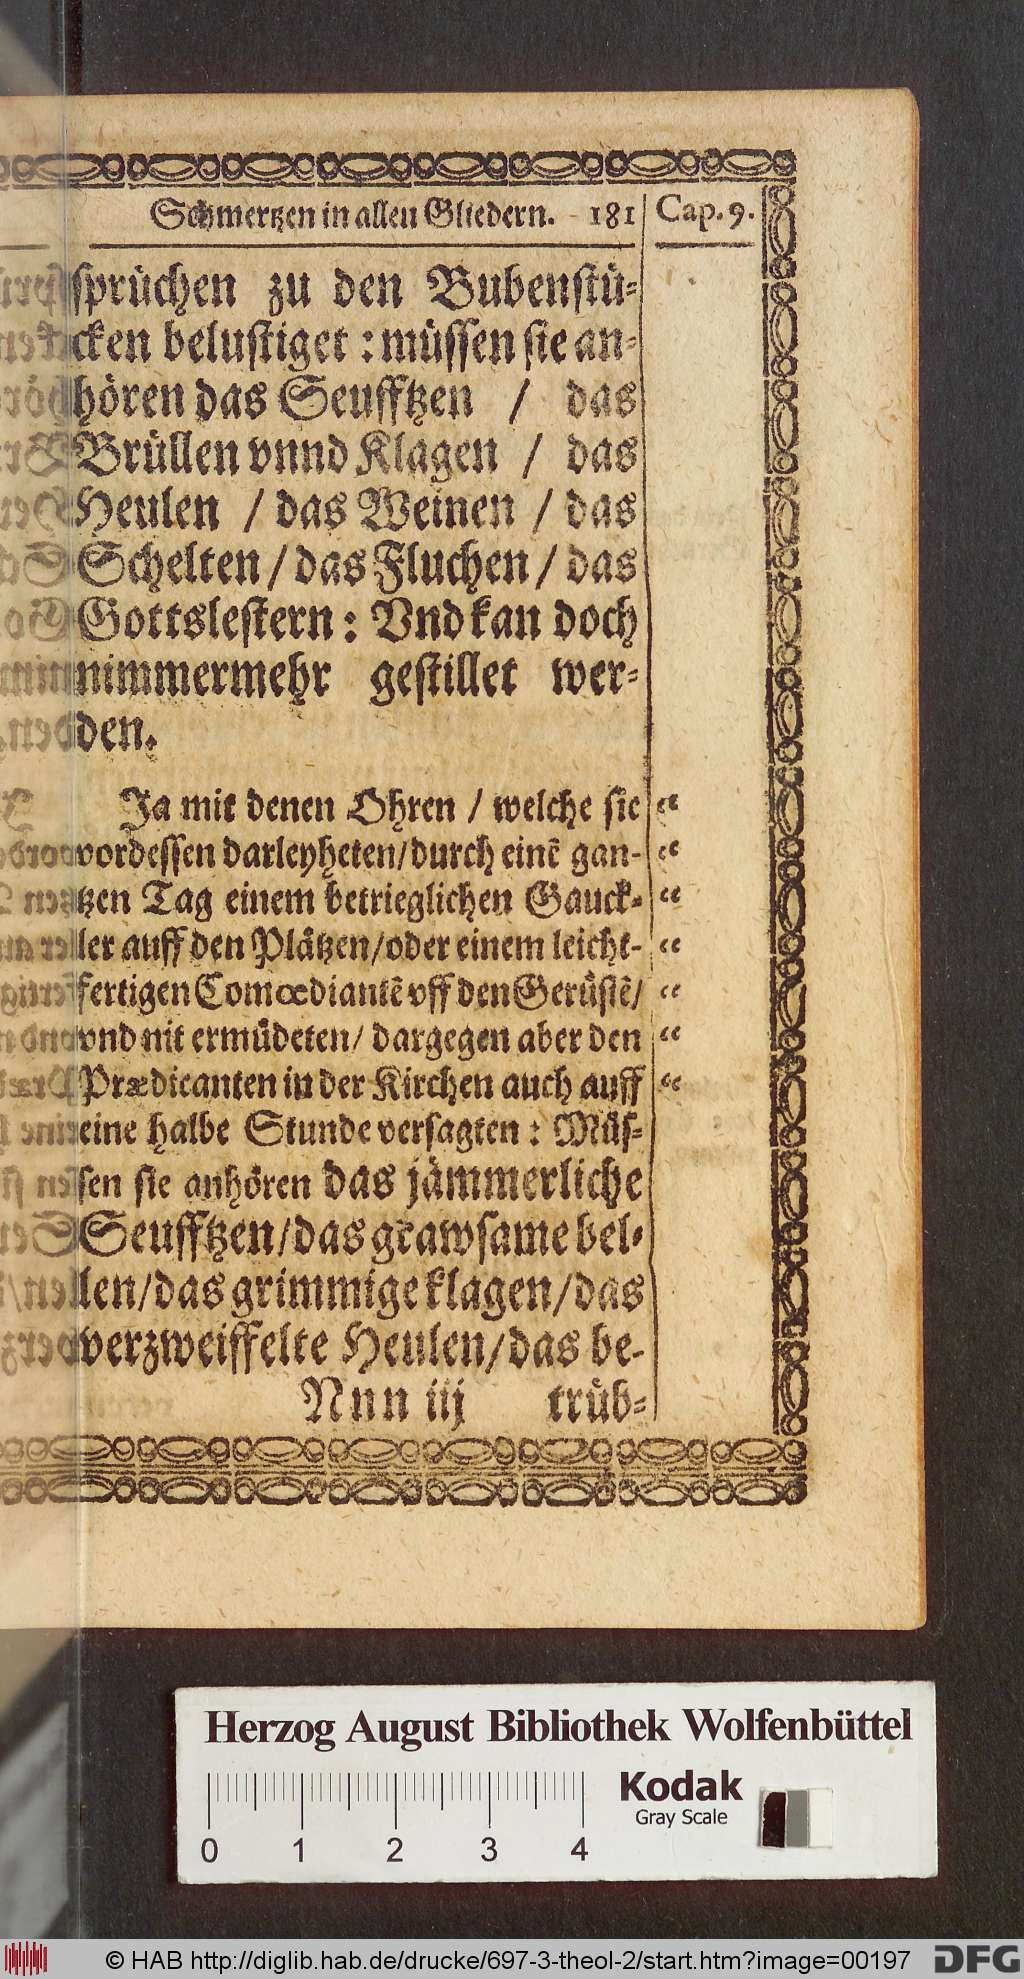 Schmertzen in allen Gliedern. 181 Cap. 9.
sprüchen zu den Bubenstü-
cken belustiget : müssen sie an-
hören das Seufftzen / das
Brüllen vnnd Klagen / das
Heulen / das Weinen / das
Schelten / das Fluchen / das
Gottslestern : Vnd kan doch
nimmermehr gestillet wer-
den.
Ja mit denen Ohren / welche sie “
vordessen darleyheten/durch einẽ gan- “
tzen Tag einem betrieglichen Gauck- “
ler auff den Plätzen/oder einem leicht- “
fertigen Comœdiantẽ vff den Gerüstẽ/ “
vnd nit ermüdeten/ dargegen aber den “
Prædicanten in der Kirchen auch auff “
eine halbe Stunde versagten : Müs-
sen sie anhören das jämmerliche
Seufftzen/das grawsame bel-
len/das grimmige klagen/das
verzweiffelte Heulen/das be-
Nnn iij trüb-
Herzog August Bibliothek Wolfenbüttel
Kodak
Gray Scale
0 1 2 3 4
© HAB http://diglib.hab.de/drucke/697-3-theol-2/start.htm?image=00197 DFG